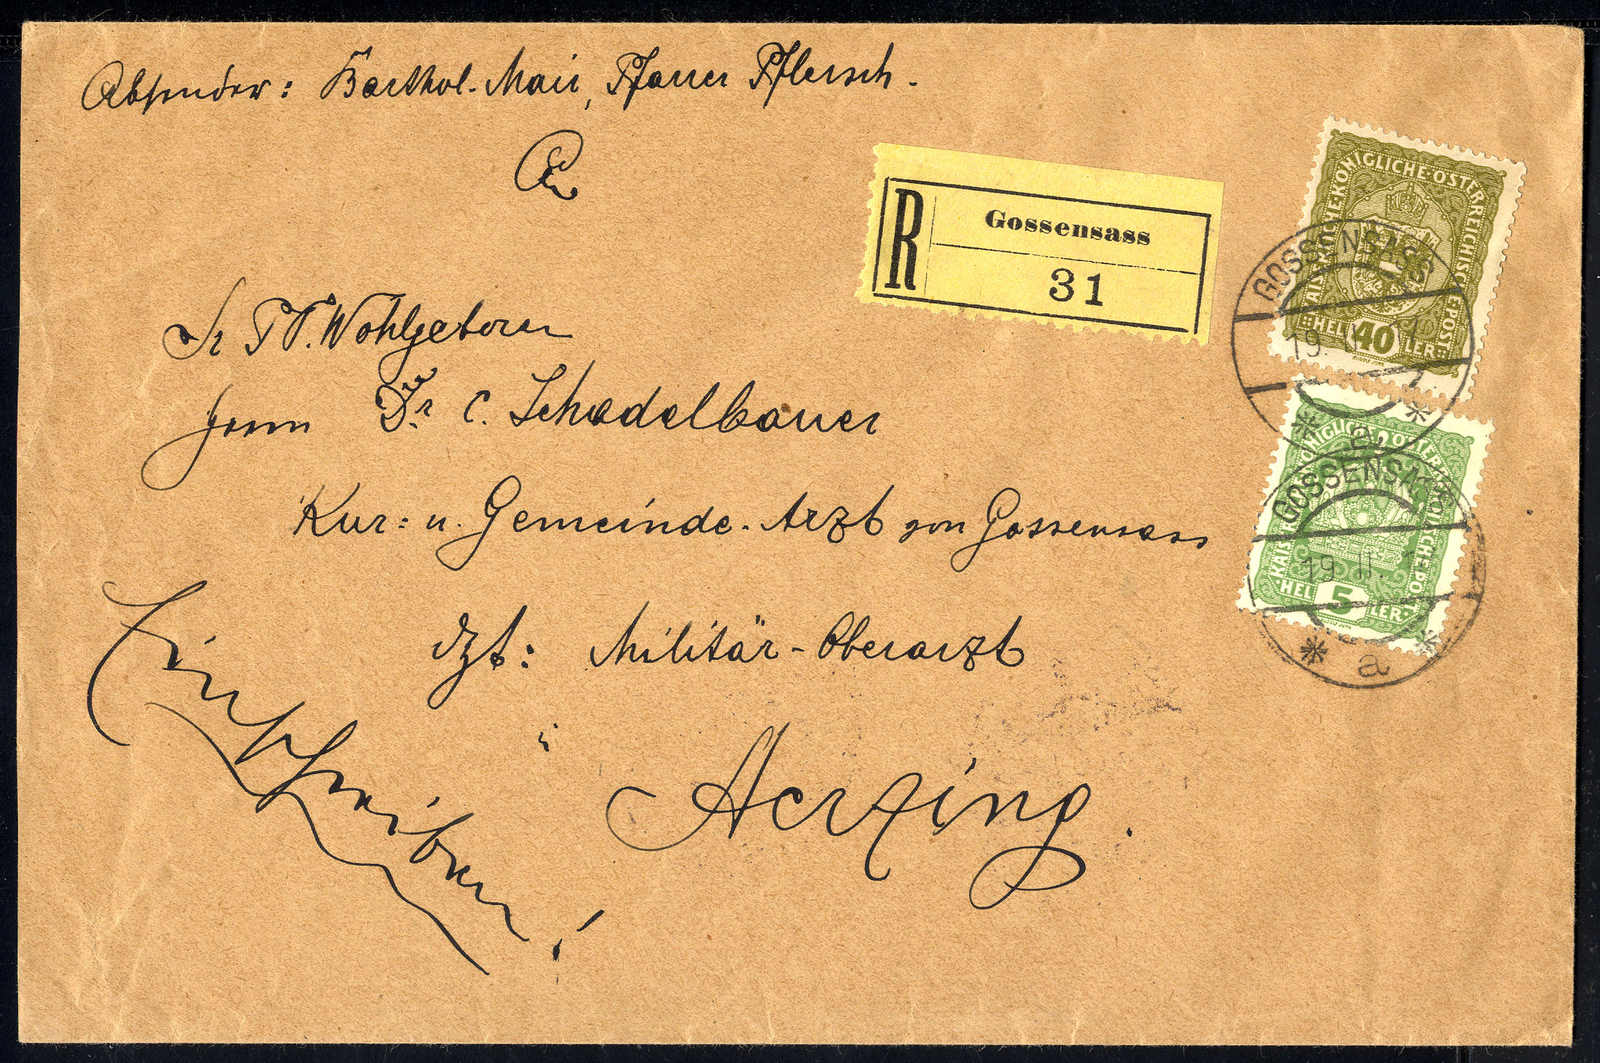 Absender: Barthol. Mair, Pfarrer Pflersch.
An
R
Gossensass
31
Sr P.T. Wohlgeboren
Herrn Dr. C. Schadelbauer
Kur- u. Gemeinde-Arzt von Gossensass
dzt: Militär-Oberarzt
in
Einschreiben!
KAISERLICHE KÖNIGLICHE ÖSTERREICHISCHE POST
HELLER
40
GOSSENSASS
19.
KAISERLICHE KÖNIGLICHE ÖSTERREICHISCHE POST
HELLER
5
GOSSENSASS
19. II.
* a *